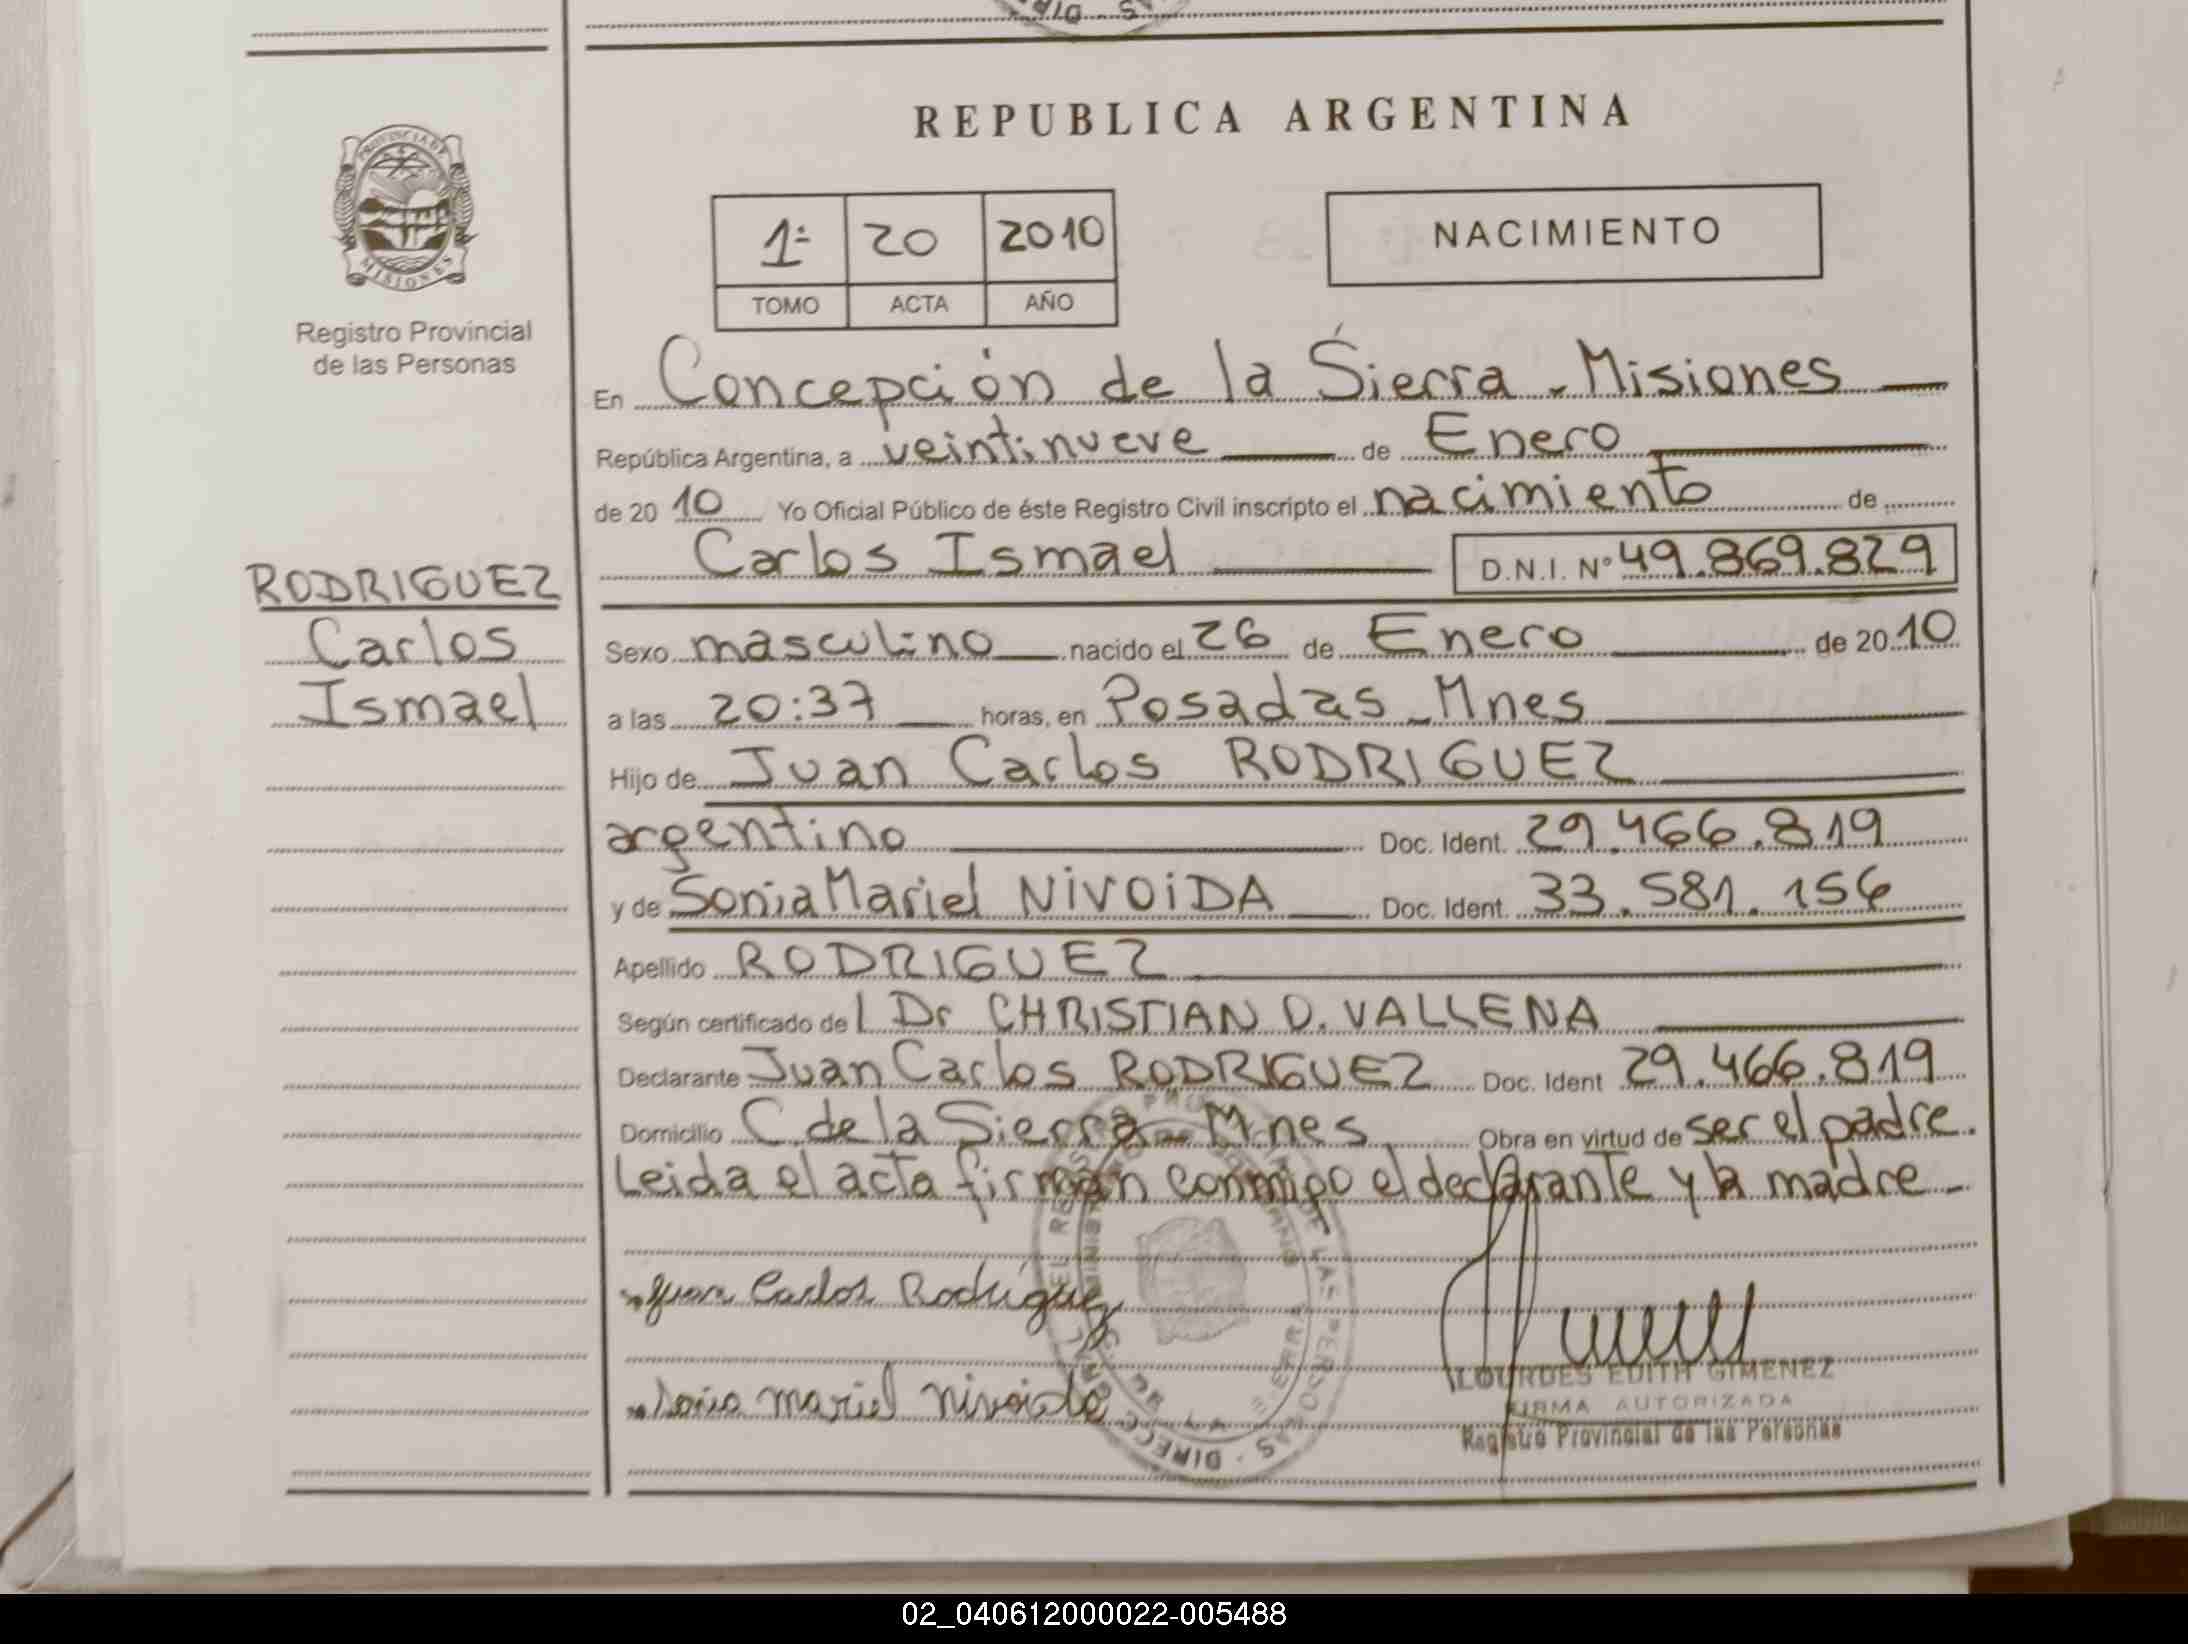 REPUBLICA ARGENTINA
PROVINCIA DE
MISIONES
Registro Provincial
de las Personas
1º 20 2010
TOMO ACTA AÑO
NACIMIENTO
En Concepción de la Sierra - Misiones
República Argentina, a veintinueve de Enero
de 2010 Yo Oficial Público de éste Registro Civil inscripto el nacimiento de
Carlos Ismael D.N.I. Nº 49.869.829
RODRIGUEZ
Carlos
Ismael
Sexo masculino nacido el 26 de Enero de 2010
a las 20:37 horas, en Posadas - Mnes
Hijo de Juan Carlos RODRIGUEZ
argentino Doc. Ident. 29.466.819
y de Sonia Mariel NIVOIDA Doc. Ident. 33.581.156
Apellido RODRIGUEZ
Según certificado del Dr CHRISTIAN D. VALLENA
Declarante Juan Carlos RODRIGUEZ Doc. Ident 29.466.819
Domicilio C. de la Sierra - Mnes Obra en virtud de ser el padre.
Leida el acta firman conmigo el declarante y la madre -
Juan Carlos Rodriguez
Sonia mariel nivoida
LOURDES EDITH GIMENEZ
FIRMA AUTORIZADA
Registro Provincial de las Personas
02_040612000022-005488